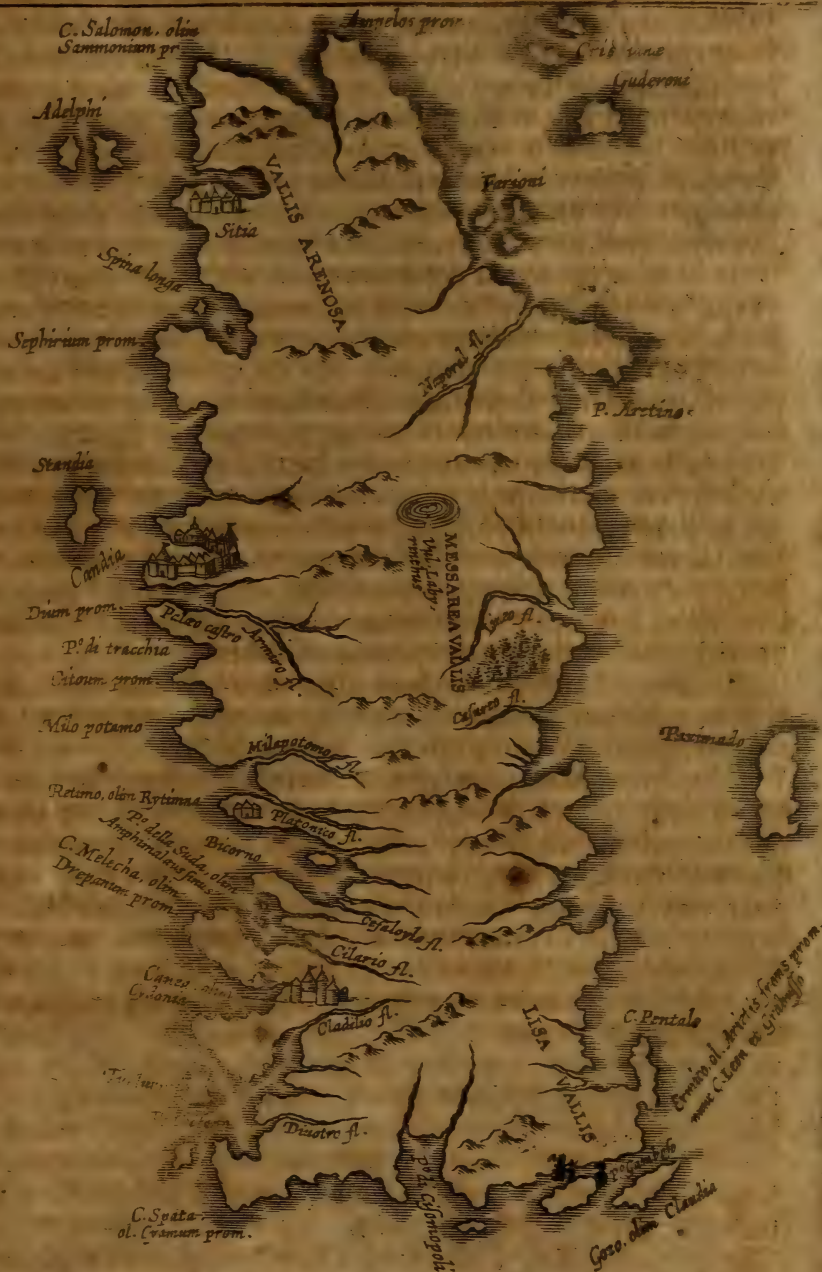 C. Salomon, olim
Sammonium pr
Ampelos prom
Guderoni
Adelphi
Farioni
VALLIS ARENOSA
Sitia
Spina longa
Sephirium prom.
Naporal fl.
P. Aretino
Standia
Candia
MESSAREA VALLIS
Vul. Laby-
rinthus
Dium prom.
Palæo castro
Armiro fl.
P.º di tracchia
prom.
Milo potamo
Cafarto fl.
Milapotomo fl.
Paximado
Retimo, olim Rytimna
Platonico fl.
Bicorno
P.º della Suda, olim
Amphimalaus sinus
C. Melecha, olim
Drepanum prom
Cefaloylo fl.
Cilario fl.
Cladilio fl.
LISA VALLIS
C. Pentalo
Ermico. ol. Arietis frons prom.
nunc C. Leon et Grabusso
Dizotre fl.
C. Spata
ol. Cramum prom.
P.º di Cysomopoli
P.º Gambuso
Gozo. olim Claudia